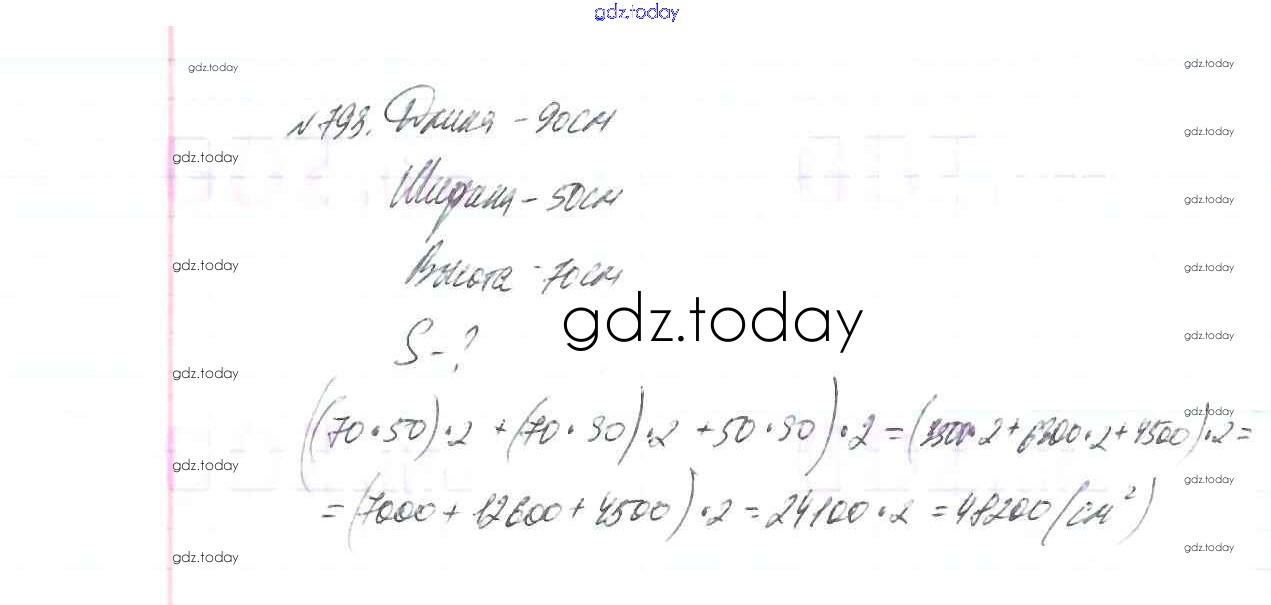 gdz.today
gdz.today
gdz.today
№793. Длина - 90см
gdz.today
gdz.today
Ширина - 50см
gdz.today
gdz.today
gdz.today
Высота - 70см
gdz.today
gdz.today
S - ?
gdz.today
gdz.today
((70·50)·2 + (70·90)·2 + 50·90)·2 = (3500·2 + 6300·2 + 4500)·2 =
gdz.today
gdz.today
= (7000 + 12600 + 4500)·2 = 24100·2 = 48200 (см²)
gdz.today
gdz.today
gdz.today